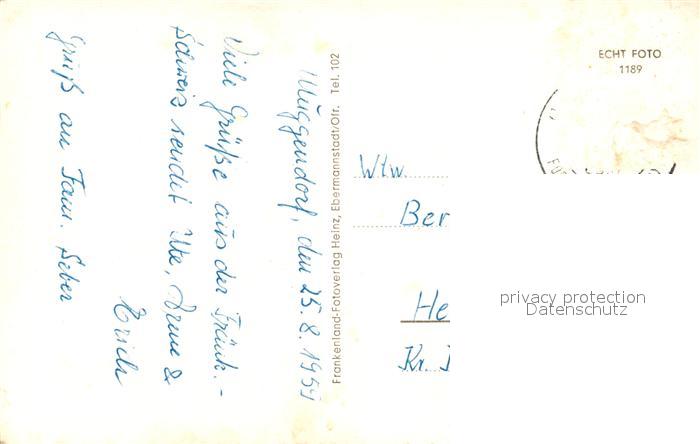 Muggendorf, den 25.8.1959
Viele Grüße aus der Fränk.-
Schweiz sendet Ute, Arme &
Erich
Gruß an Fam. Seber
Frankenland-Fotoverlag Heinz, Ebermannstadt/Ofr. Tel. 102
ECHT FOTO
1189
Wtw.
Ber
He
Kr.
privacy protection
Datenschutz